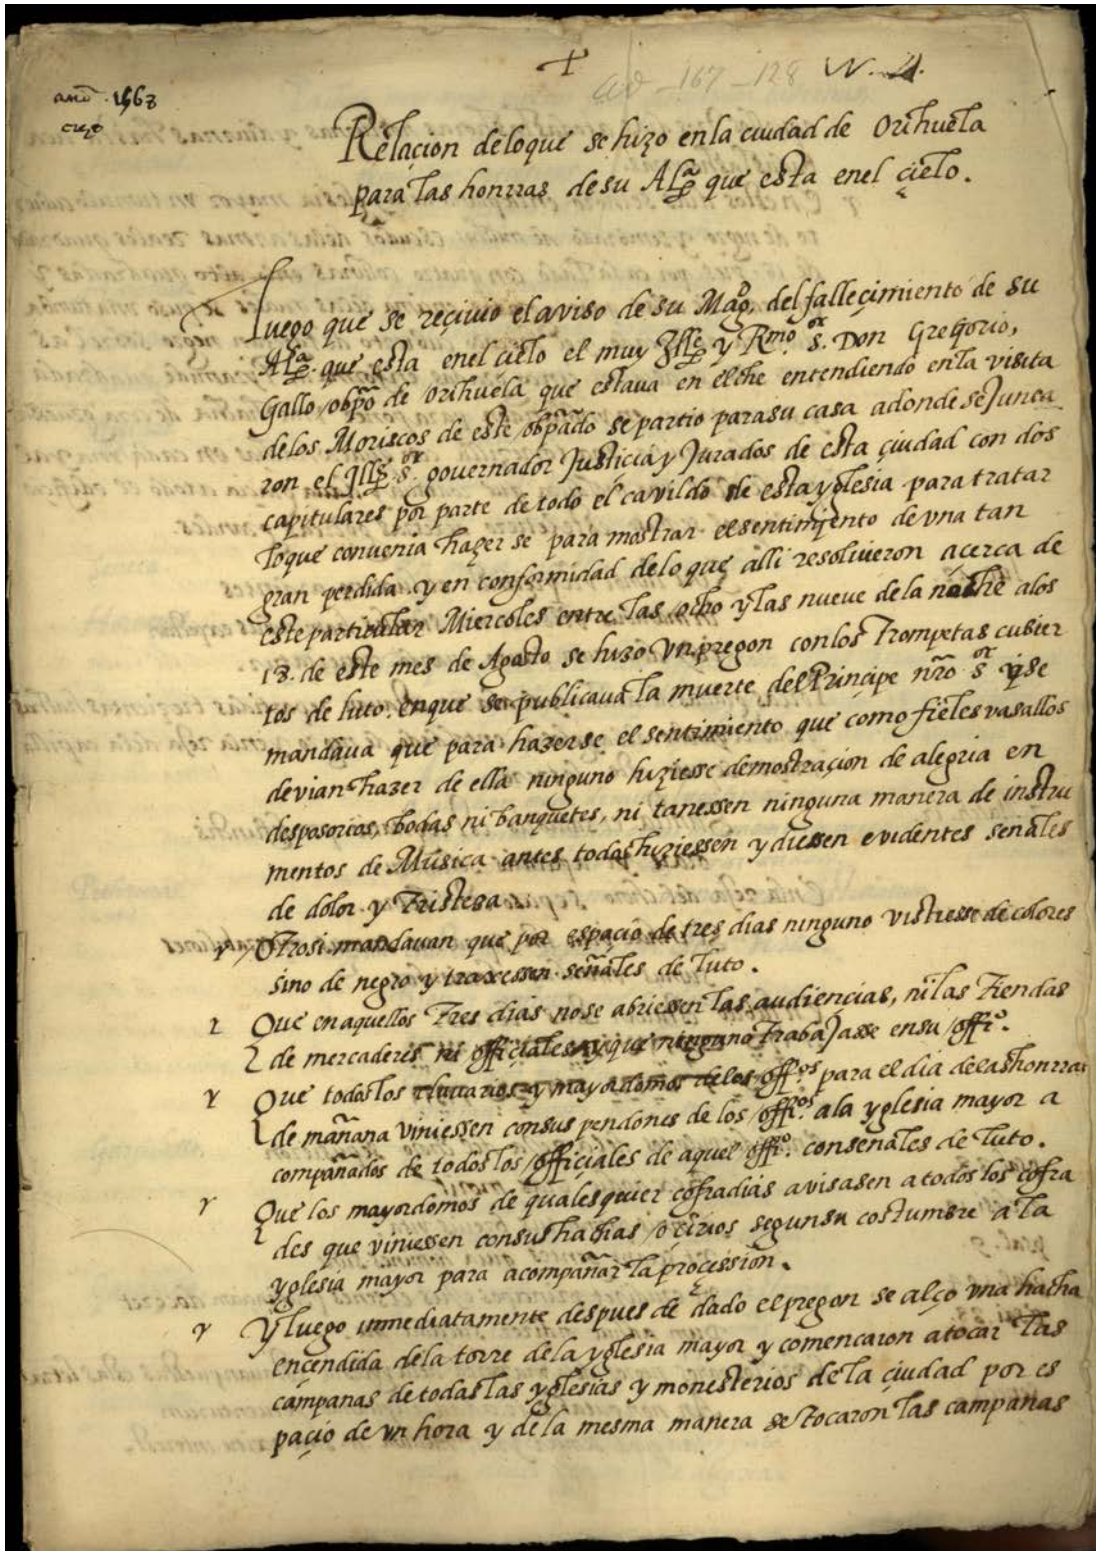 +
año .1568
ad _167_128 N. 21.
Relacion deloque se hizo enla ciudad de Orihuela
para las honrras de su Alª que esta enel cielo.
Luego que se reçiuio elaviso de su Magd. del falleçimiento de su
Alª. que esta enel cielo el muy Illᵉ y Rmo. sʳ. Don Gregorio,
Gallo obpõ de Orihuela que estaua en elche entendiendo enla visita
delos Moriscos de este obpãdo se partio parasu casa adonde se Junta
ron el Illᵉ. sʳ. governador Justicia y Jurados de esta çiudad con dos
capitulares por parte de todo el cavildo de esta yglesia para tratar
loque convenia hazer se para mostrar elsentimiento de vna tan
gran perdida y en conformidad delo que alli resoluieron açerca de
este particular Miercoles entre las ocho y las nueve dela noche alos
18. de este mes de Agosto se hizo Vn pregon conlos Trompetas cubier
tos de luto. enque se publicaua la muerte del Prinçipe nrõ sʳ y se
mandaua que para hazerse el sentimiento que como fieles vasallos
devian hazer de ella ninguno hiziesse demostraçion de alegria en
desposorios, bodas ni banquetes, ni tanessen ninguna manera de instru
mentos de Musica antes todos hiziessen y diessen evidentes senales
de dolor y Tristeza
Y Otrosi mandauan que por espaçio de tres dias ninguno vistiesse de colores
sino de negro y traxessen señales de luto.
Y Que enaquellos Tres dias nose abriessen las audiençias, ni las Tiendas
de mercaderes ni offiçiales y que ninguno TrabaJasse ensu offiº.
Y Que todos los clauarios y mayordomos delos offᵒˢ para el dia delas honrras
de mañana viniessen consus pendones de los offiᵒˢ. ala yglesia mayor a
compañados de todos los offiçiales de aquel offiº. consenales de luto.
Y Que los mayordomos de qualesquier cofradias avisasen a todos los cofra
des que viniessen consus hachas o çirios segun su costumbre a la
yglesia mayor para acompañar la proçession.
Y Y luego immediatamente despues de dado el pregon se alço vna hacha
encendida dela torre dela yglesia mayor y comencaron atocar las
campanas de todas las yglesias y monesterios de la çiudad por es
paçio de vn hora y dela mesma manera se tocaron las campanas